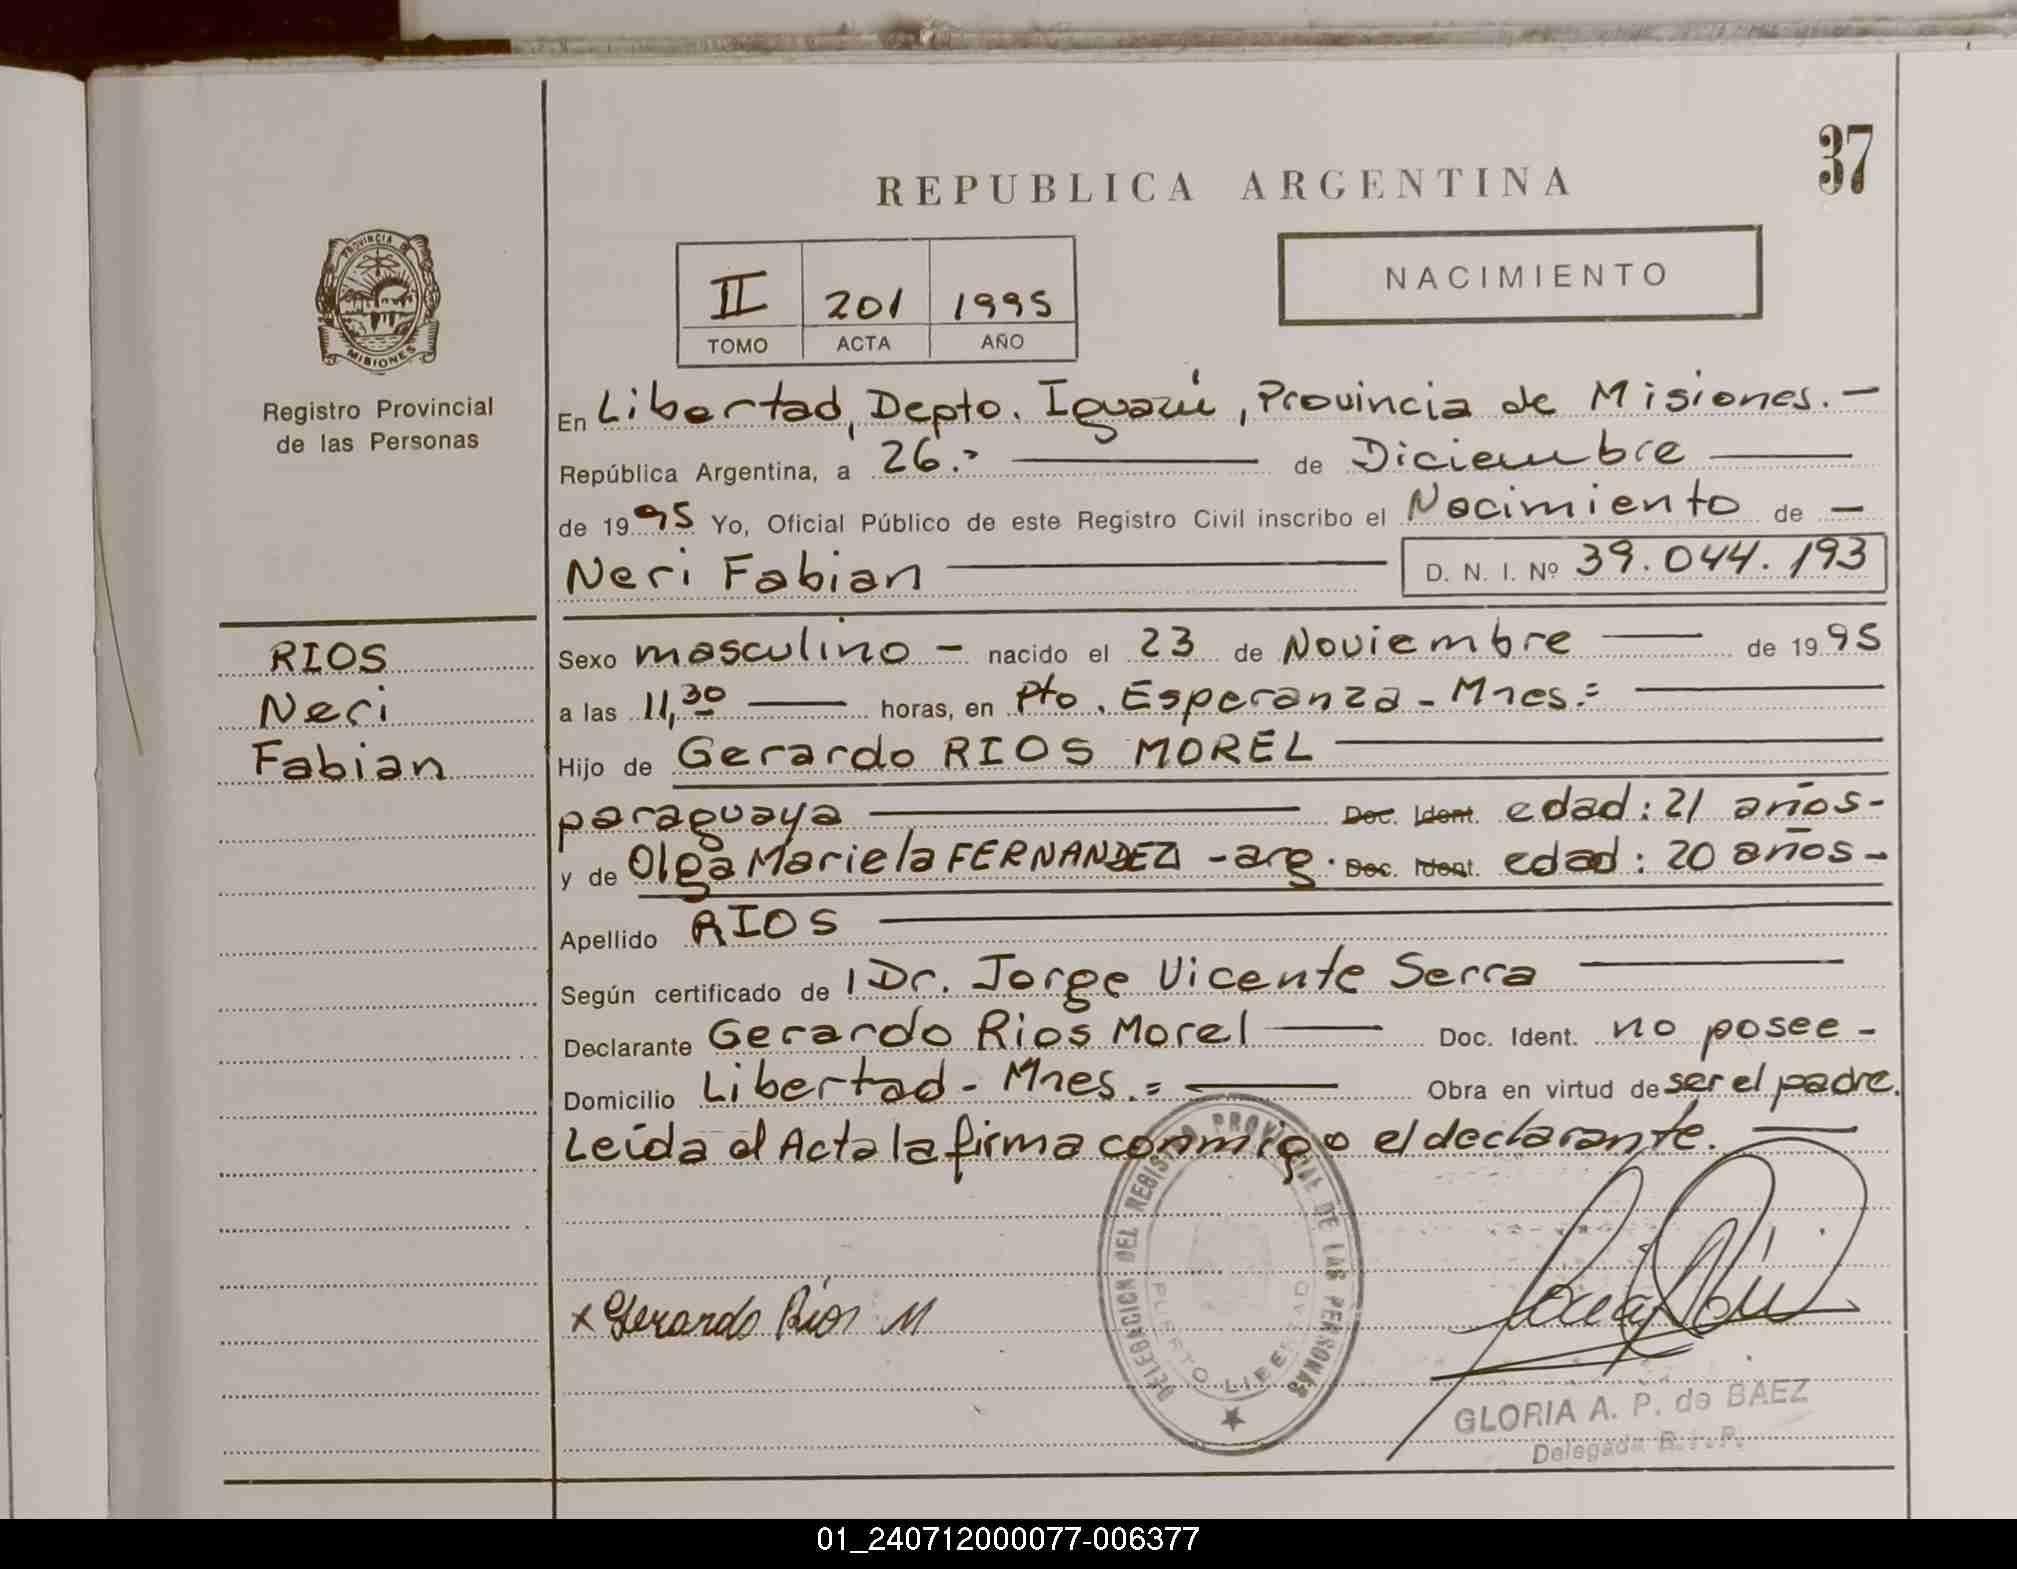 37
REPUBLICA ARGENTINA
NACIMIENTO
II 201 1995
TOMO ACTA AÑO
PROVINCIA DE
MISIONES
Registro Provincial
de las Personas
En Libertad, Depto. Iguazú, Provincia de Misiones.-
República Argentina, a 26.- de Diciembre
de 1995 Yo, Oficial Público de este Registro Civil inscribo el Nacimiento de -
Neri Fabian D. N. I. Nº 39.044.193
RIOS
Neri
Fabian
Sexo masculino - nacido el 23 de Noviembre de 1995
a las 11,30 horas, en Pto. Esperanza - Mnes.=
Hijo de Gerardo RIOS MOREL
paraguaya Doc. Ident. edad: 21 años-
y de Olga Mariela FERNANDEZ - arg. Doc. Ident. edad: 20 años-
Apellido RIOS
Según certificado de l Dr. Jorge Vicente Serra
Declarante Gerardo Rios Morel Doc. Ident. no posee -
Domicilio Libertad - Mnes.= Obra en virtud de ser el padre.
Leída el Acta la firma conmigo el declarante.
x Gerardo Ríos M
DELEGACION DEL REGISTRO PROVINCIAL DE LAS PERSONAS
PUERTO LIBERTAD
GLORIA A. P. de BAEZ
Delegada R.P.P.
01_240712000077-006377